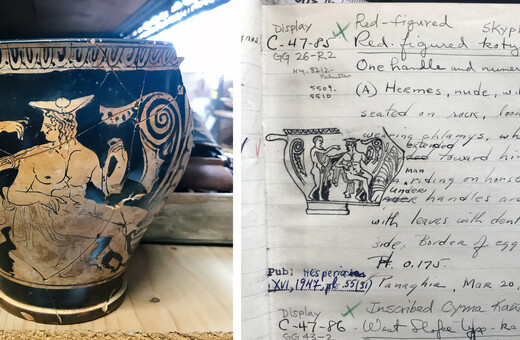 Display
C-47-85
GG 26-R2
Red-figured skyph
Red-figured koty
One handle and nume
5509.
5510
(A) Hermes, nude, w
seated on rock, loo
chlamys, wh
extended
toward hi
man
riding on horse
under
handles are
with leaves with dent
side. Border of egg
H. 0.175.
Pub: Hesperia
XVI, 1947, pl. 55 (31)
Tanaghia, Mar 20,
Display
C-47-86
GG 43-2
Inscribed Cyma Ka
West Slope